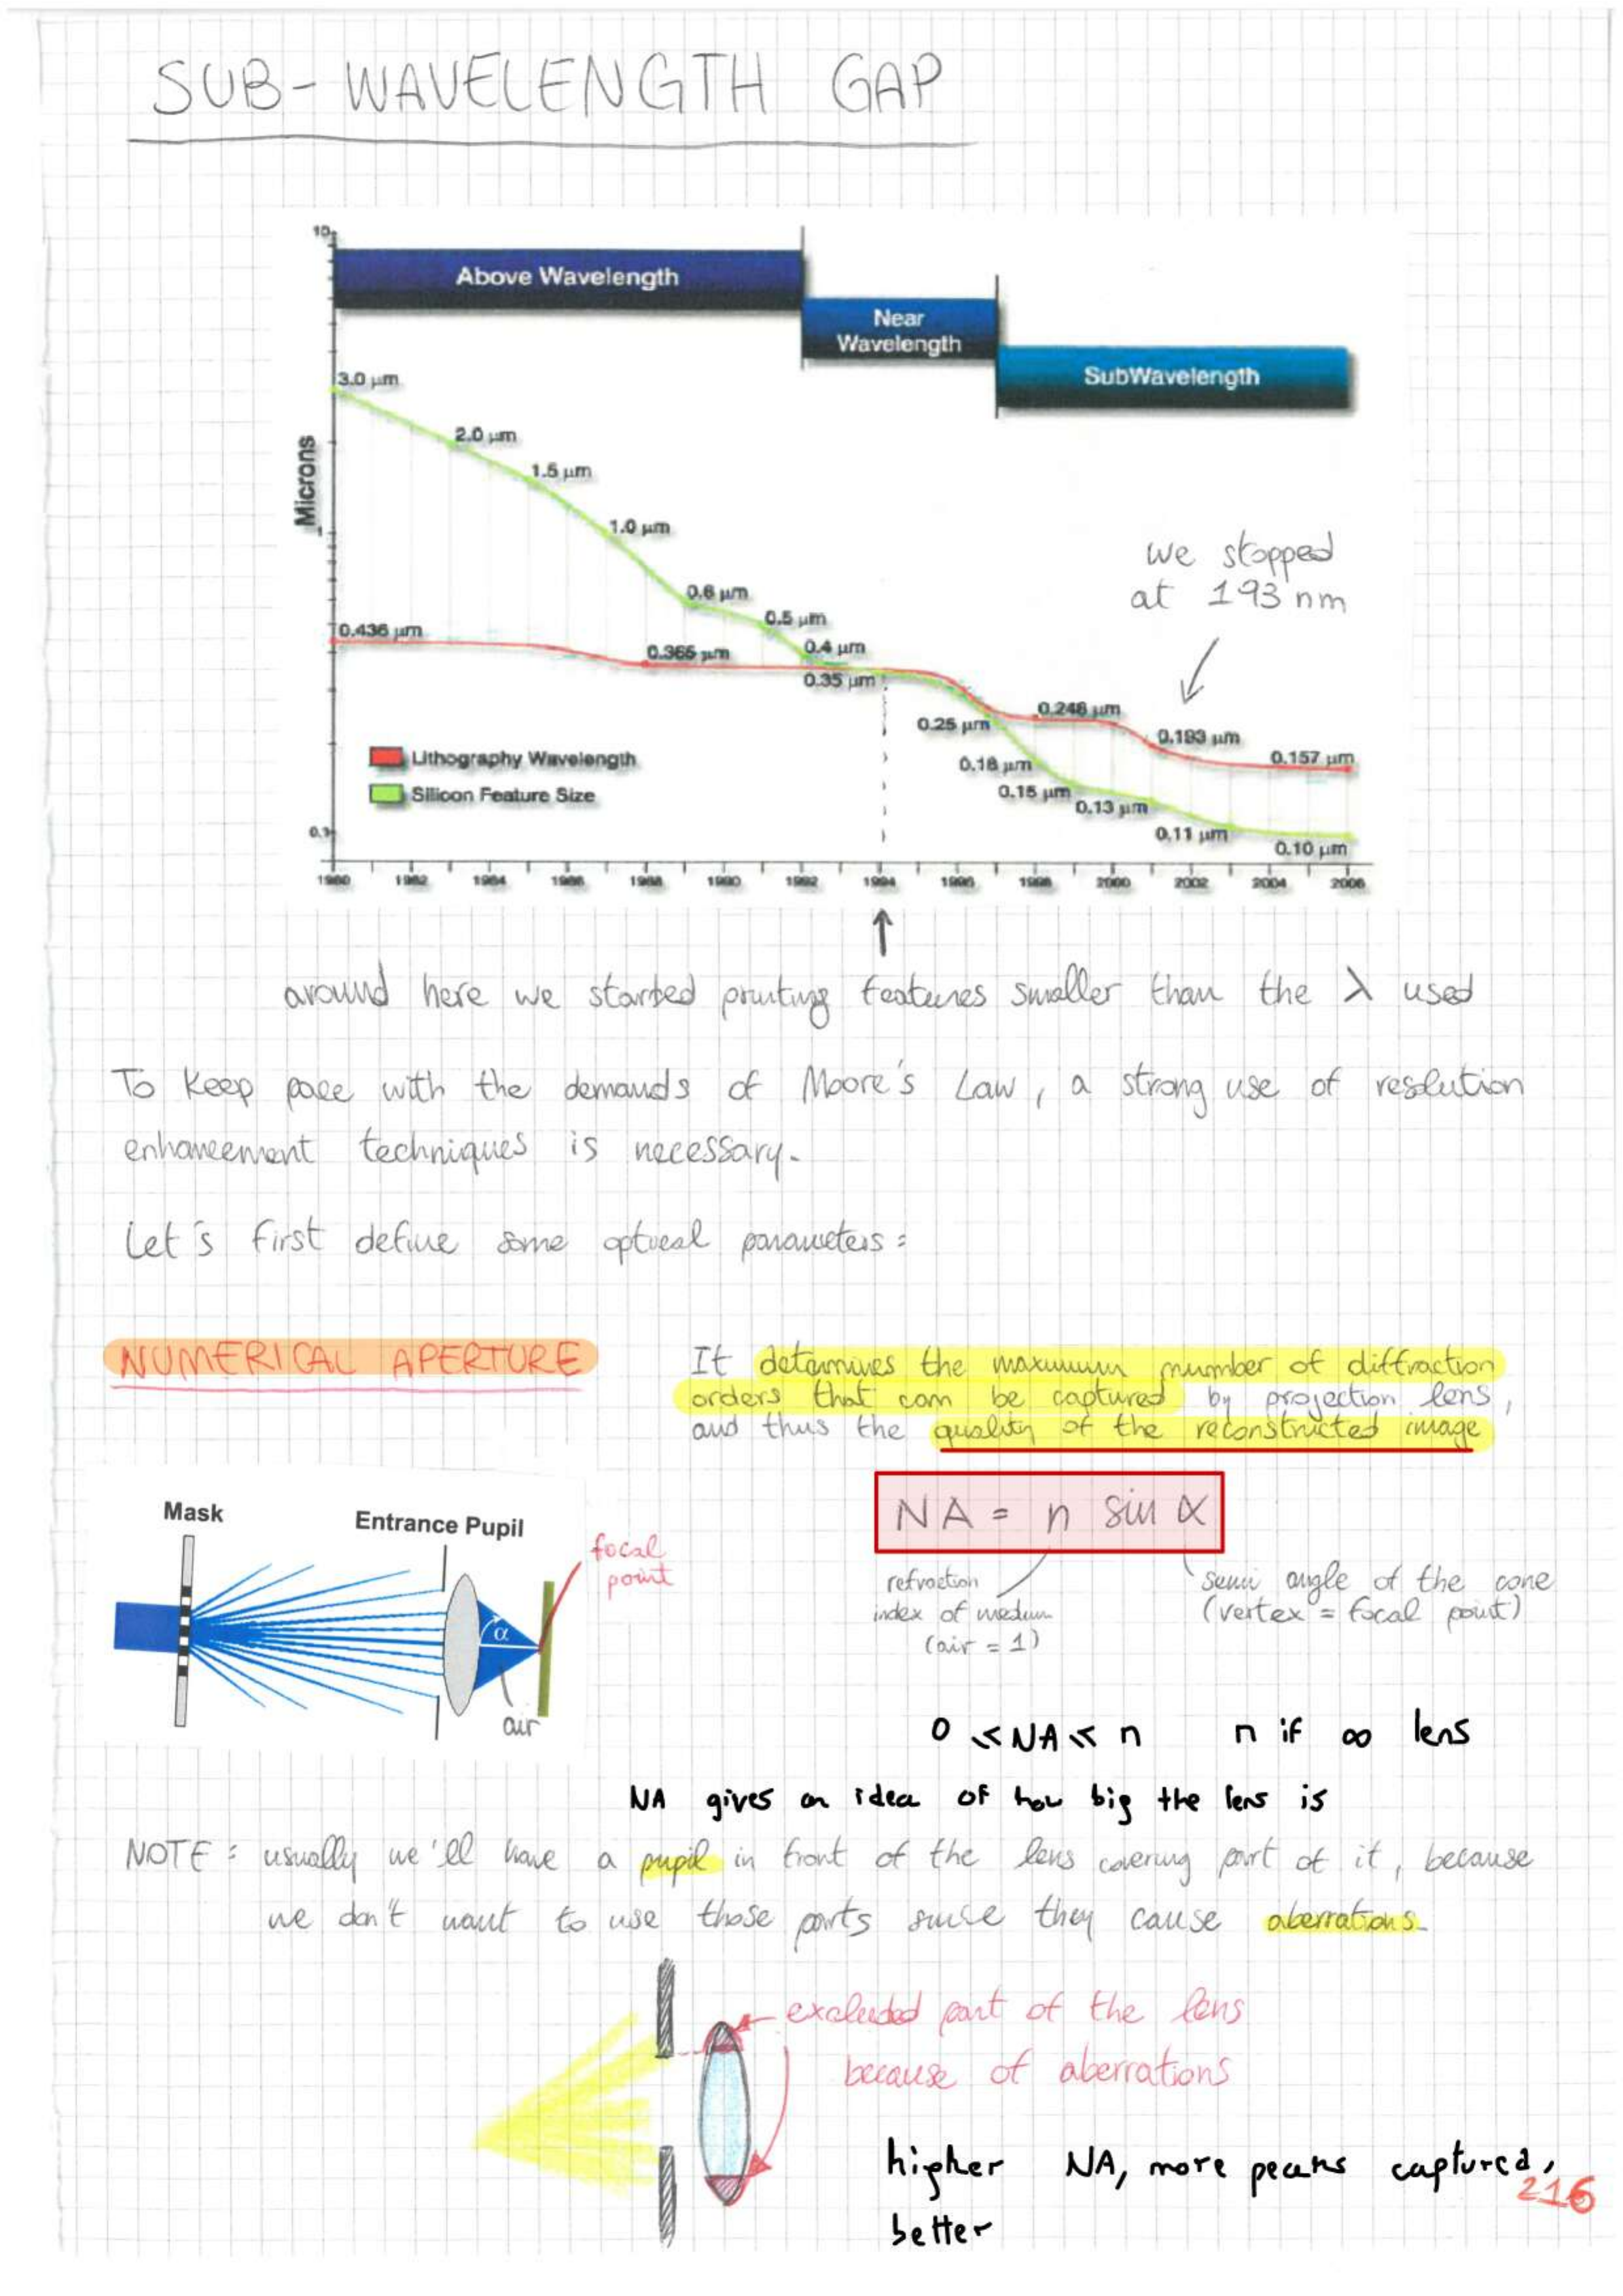 SUB-WAVELENGTH GAP
10
Above Wavelength
Near
Wavelength
SubWavelength
3.0 µm
2.0 µm
1.5 µm
Microns
1
1.0 µm
we stopped
at 193 nm
0.6 µm
0.5 µm
0.436 µm
0.365 µm
0.4 µm
0.35 µm
0.25 µm
0.248 µm
0.193 µm
0.157 µm
0.18 µm
0.15 µm
0.13 µm
0.11 µm
0.10 µm
Lithography Wavelength
Silicon Feature Size
0.1
1980 1982 1984 1986 1988 1990 1992 1994 1996 1998 2000 2002 2004 2006
around here we started printing features smaller than the λ used
To keep pace with the demands of Moore's Law, a strong use of resolution
enhancement techniques is necessary.
Let's first define some optical parameters:
NUMERICAL APERTURE
It determines the maximum number of diffraction
orders that can be captured by projection lens,
and thus the quality of the reconstructed image
Mask
Entrance Pupil
focal
point
α
air
NA = n sin α
refraction
index of medium
(air = 1)
semi angle of the cone
(vertex = focal point)
0 ≤ NA ≤ n n if ∞ lens
NA gives an idea of how big the lens is
NOTE: usually we'll have a pupil in front of the lens covering part of it, because
we don't want to use those parts since they cause aberrations.
excluded part of the lens
because of aberrations
higher NA, more peaks captured,
better
216